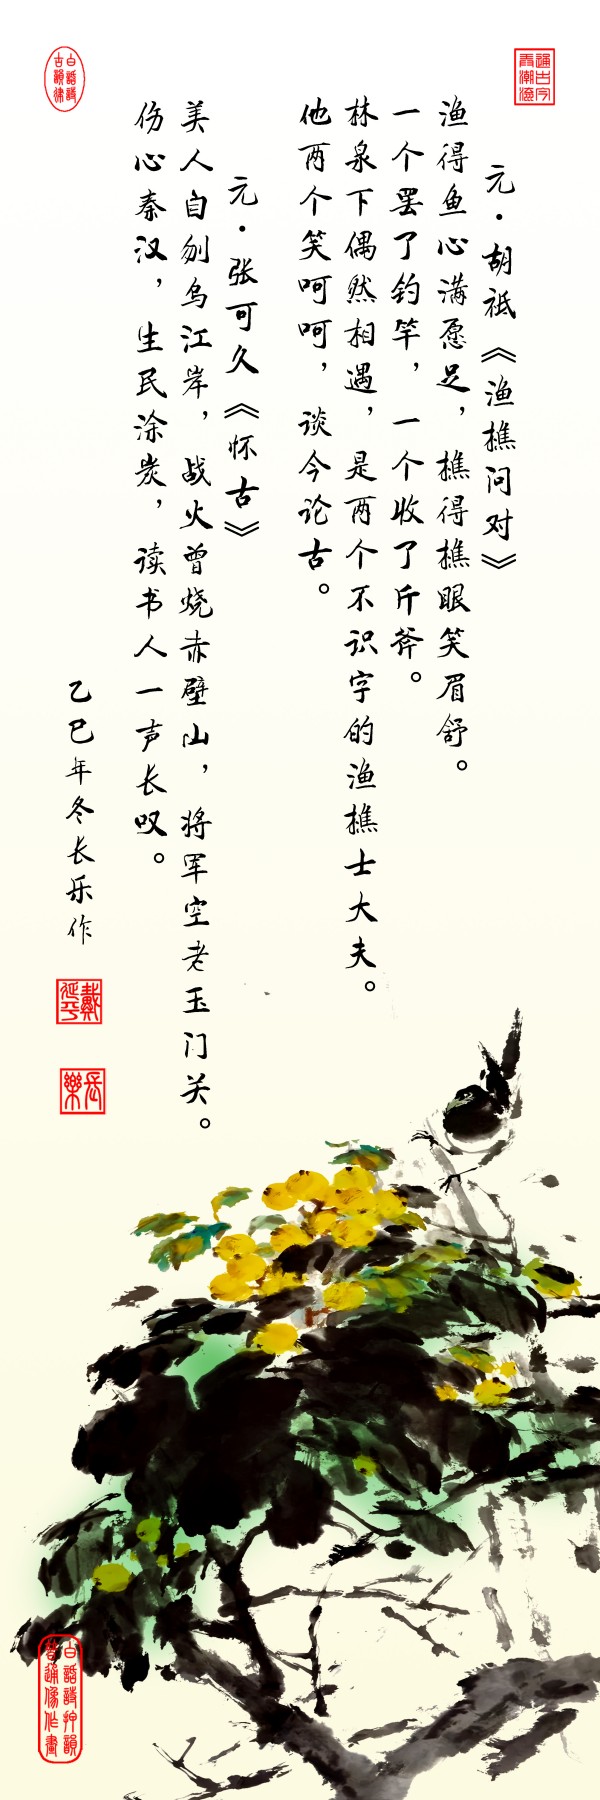 元·胡祗《渔樵问对》
渔得鱼心满愿足，樵得樵眼笑眉舒。
一个罢了钓竿，一个收了斤斧。
林泉下偶然相遇，是两个不识字的渔樵士大夫。
他两个笑呵呵，谈今论古。
元·张可久《怀古》
美人自刎乌江岸，战火曾烧赤壁山，将军空老玉门关。
伤心秦汉，生民涂炭，读书人一声长叹。
乙巳年冬长乐作
戴延平
長樂
白話詩
古韻律
白話詩押韻
普通像作畫